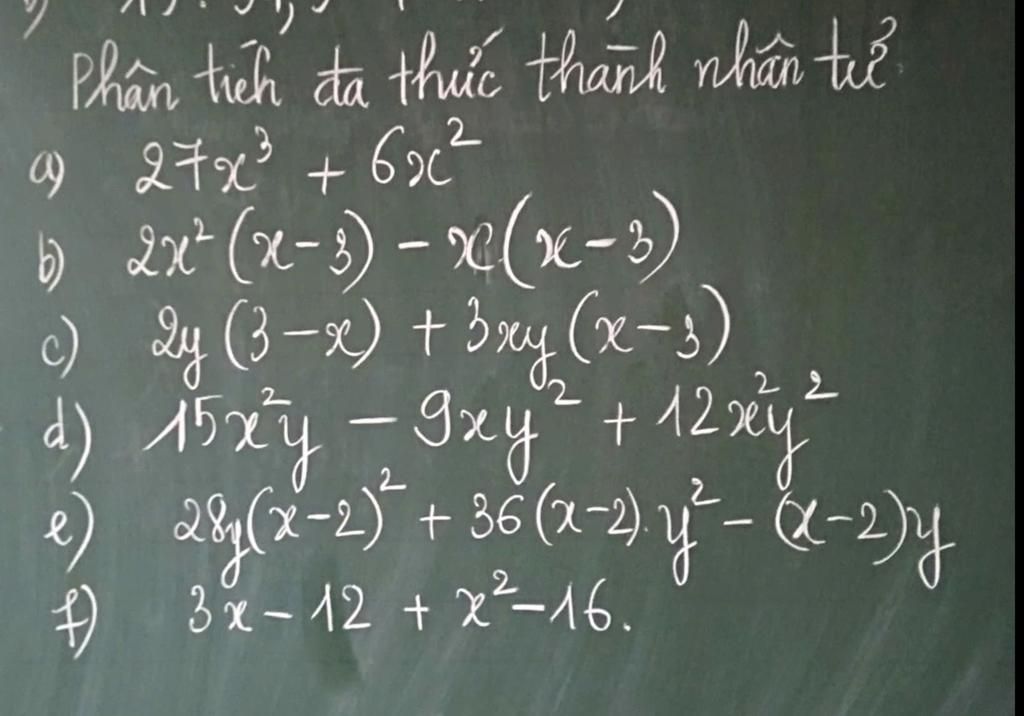 Phân tích đa thức thành nhân tử
a) 27x³ + 6x²
b) 2x² (x-3) - x(x-3)
c) 2y (3-x) + 3xy (x-3)
d) 15x²y - 9xy² + 12x²y²
e) 28y(x-2)² + 36(x-2).y² - (x-2)y
f) 3x - 12 + x² - 16.